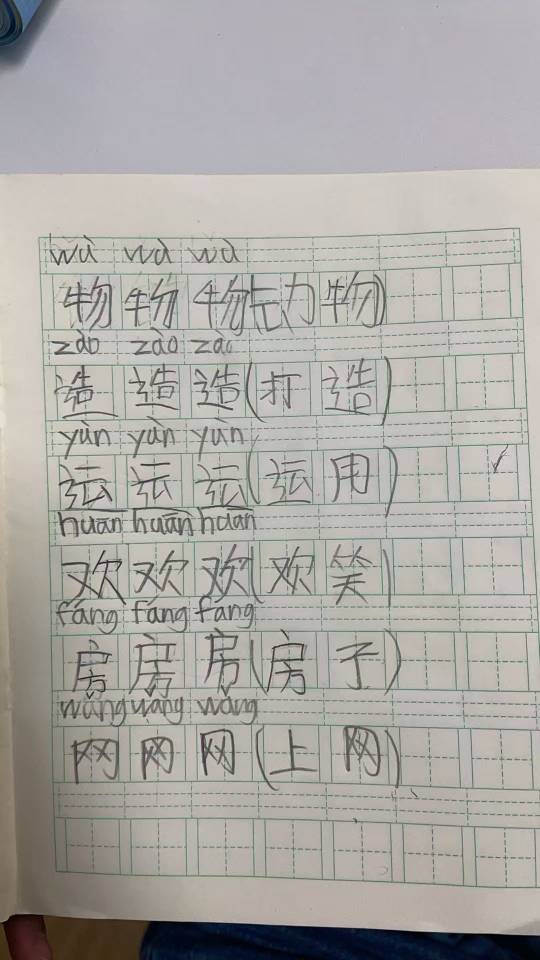 wù wù wù
物 物 物(动物)
zào zào zào
造 造 造(打造)
yùn yùn yùn
运 运 运(运用)
huān huān huān
欢 欢 欢(欢笑)
fáng fáng fáng
房 房 房(房子)
wǎng wǎng wǎng
网 网 网(上网)